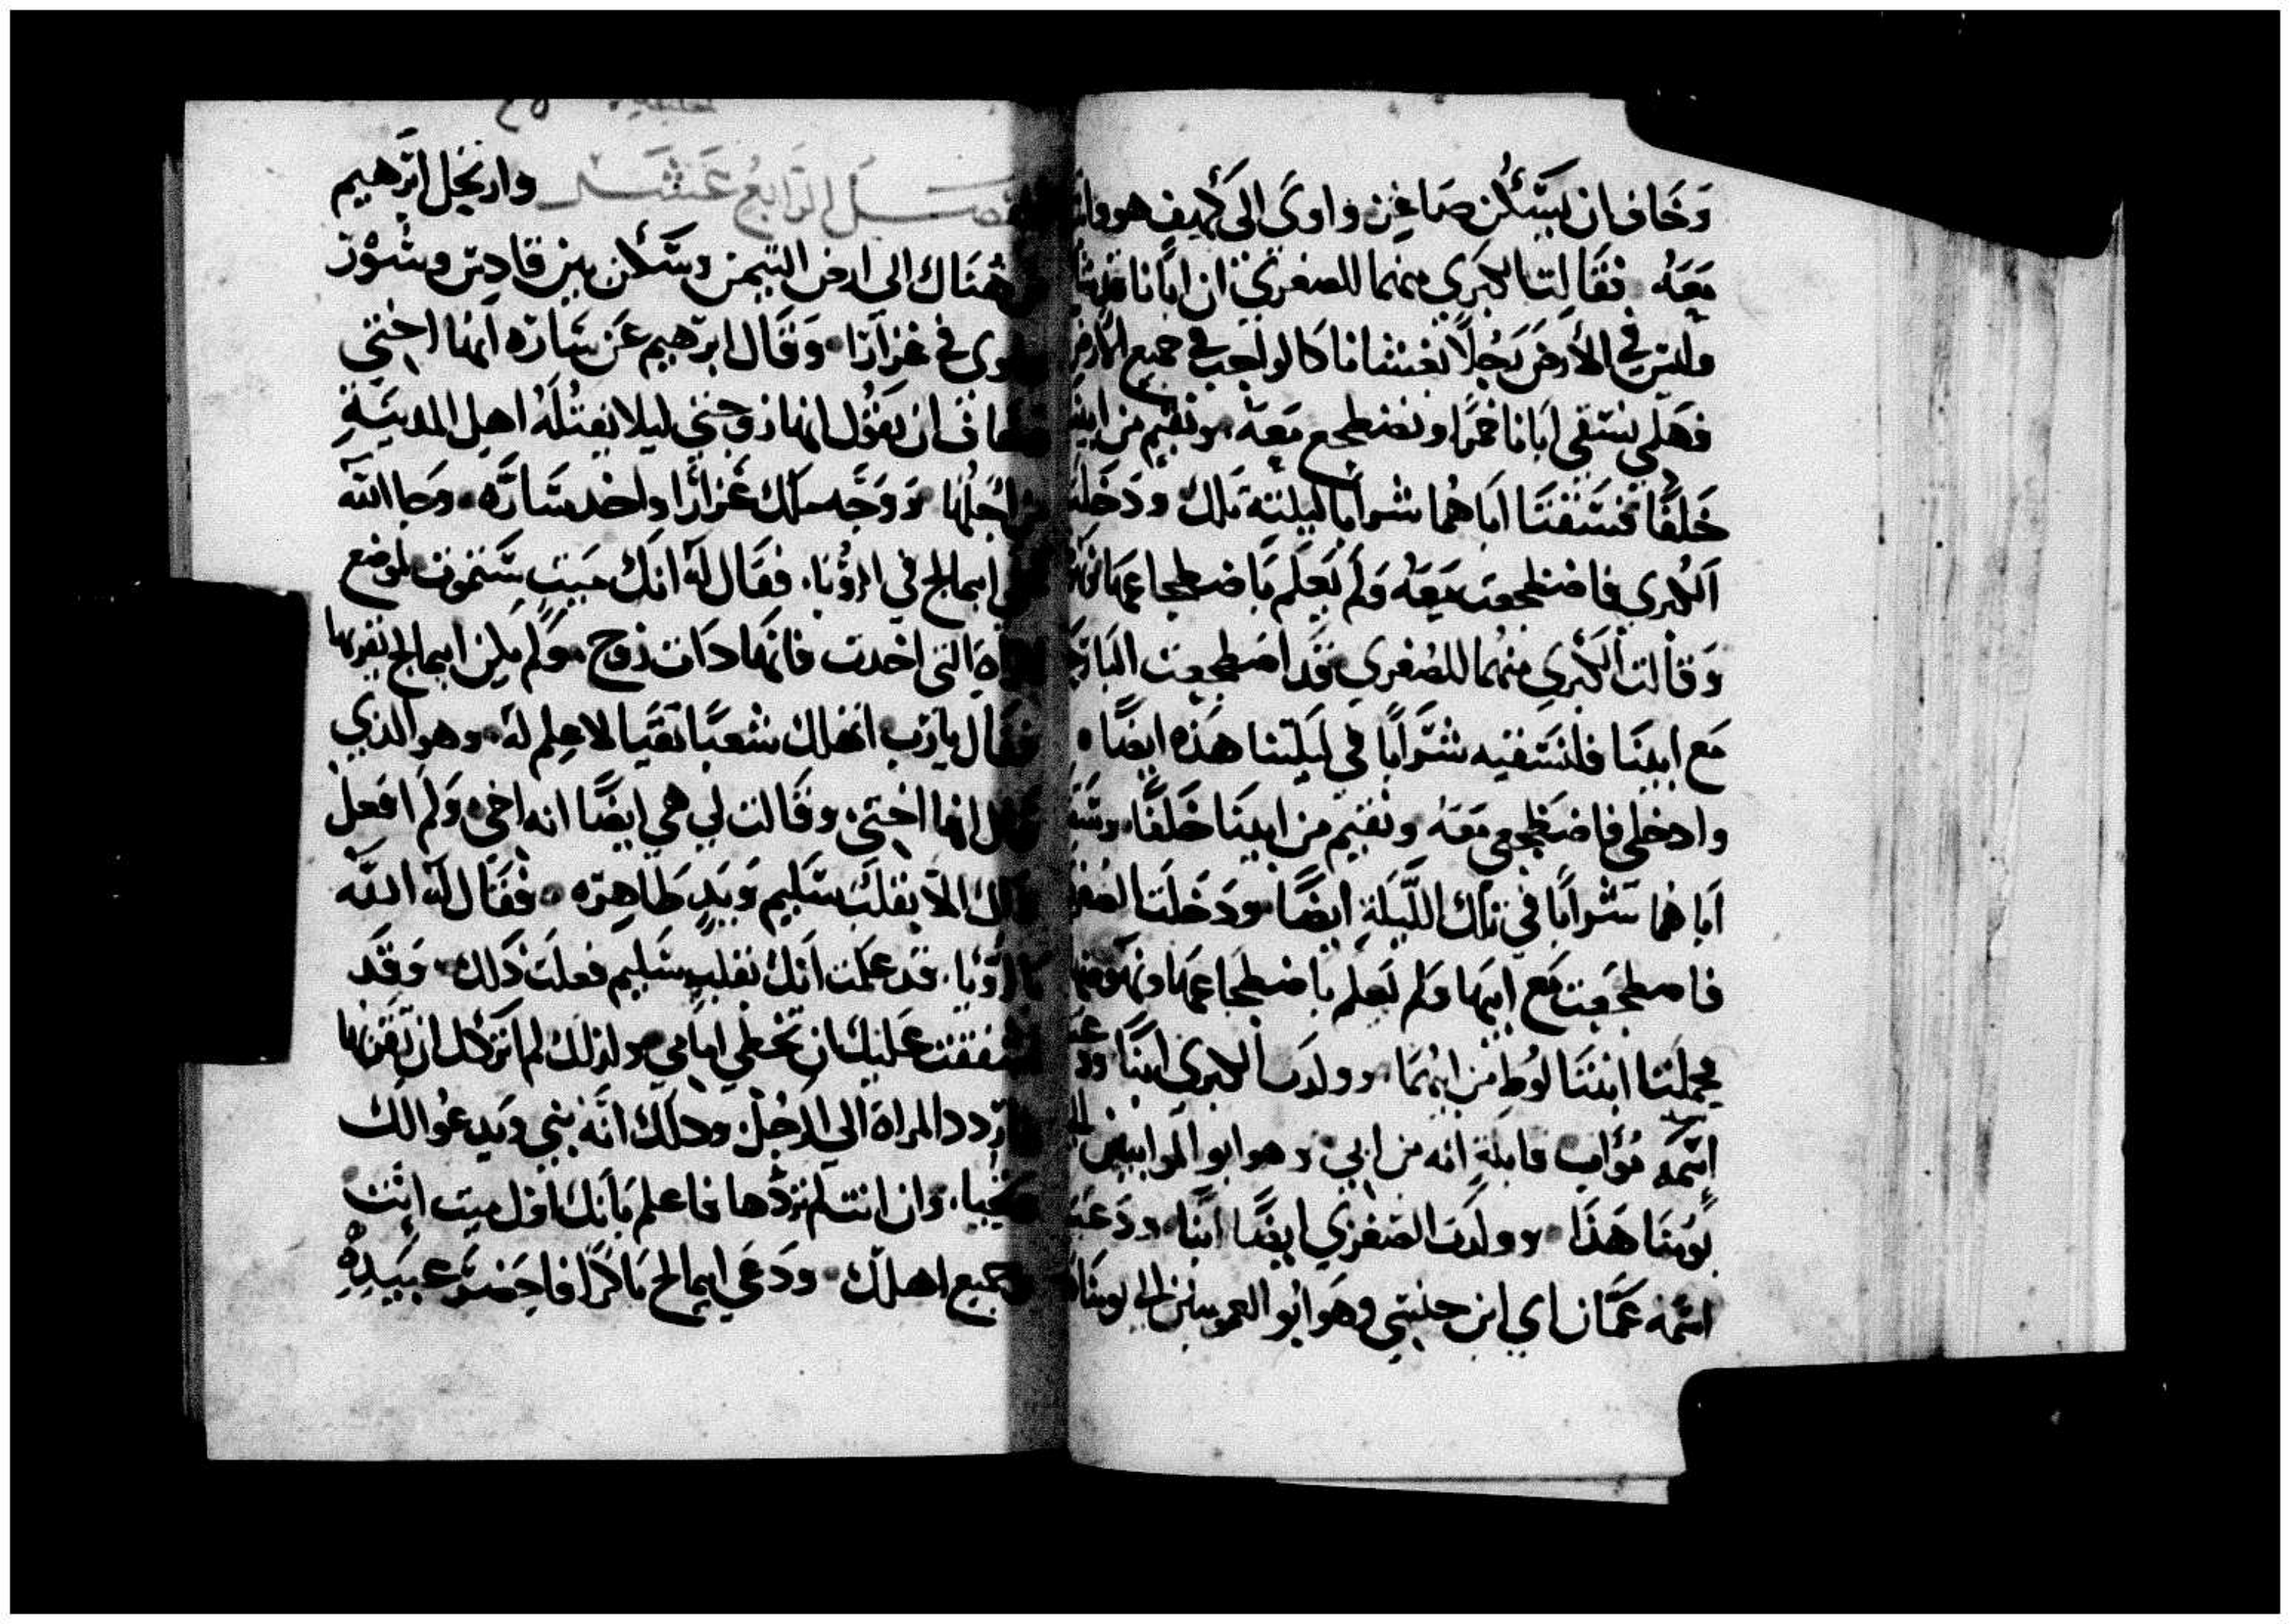 وَخَاف ان يَسَكُن صَاغِن واوَى الى كَهِيفٍ هو
مَعَهُ فقَالِت الكبرَي منهما للصغرَي ان ابَانا
وليسَ في الأرضَ رَجُلاً يغشَانا كالواجب في جميع الارض
فهَلمي نسَقي ابَانا خمرًا ونضطجع مَعَهُ ونقيم من ابينا
خَلفًا فسَقتَا ابَاهُما شرابا ليلته تلك ودَخَلَت
الكُبري فاضطجعت مَعَهُ وَلم يَعلَم بَاضطجاعهَا
وَقالت الكُبَري منهُما للصُغرَي قد اضطجعت البارحَ
مَع ابينَا فلنسَقيه شرَابًا في ليلتنا هَذه ايضًا
وادخلي فاضطجعي مَعَهُ ونقيم من ابينَا خَلفًا وسَقَ
ابَاهُما شرابًا في تلك اللّيَلةِ ايضًا ودَخَلَت الصُغرَ
فاضطجَعت مَع ابيهَا وَلم يَعلَم بَاضطجَاعهَا ونهوضهَا
فحَملَتا ابنتَا لوُط من ابيهمَا وولدَت الكبرى ابنًا
اسمَه مُوأب قايلةٍ انه من ابي وهو ابو الموابيين الى
يَومنَا هَذَا وولدَت الصغرَي ايضًا ابنًا ودَعَت
اسمَه عَمَّان اي ابن جنبَتي وهَو ابو العمونين الى يومنَا
الفصَـل الرَابعُ عَشَـر وارتحل ابَرَهيم
من هُنَاك الى ارض التيمن وسَكن بين قادِس وشُور
في غزارَا وَقَال ابرَهيم عَن سَارَه انهَا اختي
ان يَقُول انها زوجتي ليلا يقتُلهُ اهل المدينَةِ
من اجلُهَا وَوَجَّه ملك غَزارَا واخد سَارَّه وجَا الله
ابيمالخ في الرؤيَا فقَال لَهَ انكَ مَيت سَتموت لموضع
التى اخدت فانهَا ذَات زوج وَلم يكن ابيمالخ يقربهَا
فقَال يارَب اتهلك شعبًا نَقيًا لاعِلم لهَ وهو الذي
قال انها اختي وقَالت لي هي ايضًا انه اخي وَلم افعل
ذلك الا بقلبَ سَليم وَيَدٍ طَاهِرَه فقَال لهَ الله
بالرَّؤيَا قد عَلمت انَكَ بقلبٍ سَليم فعلت ذَلك وَقَد
اشفقت عَليكَ ان تخطي امَامي ولذلك لم اترَكك ان تَقرَبهَا
فارَدد المراة الي الرَجُل وذلك انَه نبي وَيدعُوا لك
وان انت لم ترَدَها فاعلم بَانكَ تموت ميت انت
وجميع اهلك ودَعَي ابيمالخ بَاكرًا فاحضرَ عبيَدِهِ